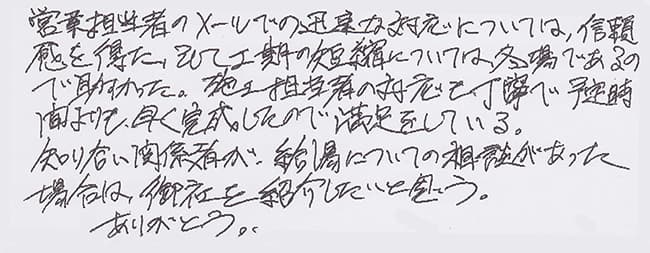 営業担当者のメールでの迅速な対応については、信頼
感を得た、そして工期の短縮については、冬場であるの
で助かった。施工担当者の対応も丁寧で予定時
間よりも、早く完成したので満足をしている。
知り合い関係者が、給湯についての相談があった
場合は、御社を紹介したいと思う。
ありがとう。